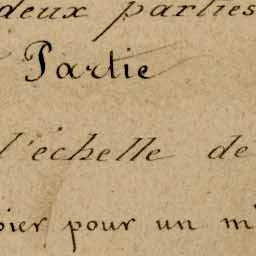 deux parties
Partie
l'échelle de
pour un